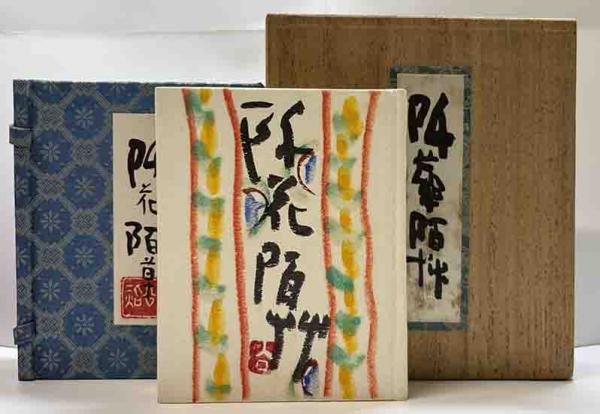 阡花陌草
阡花陌艸
谷
阡華陌艸